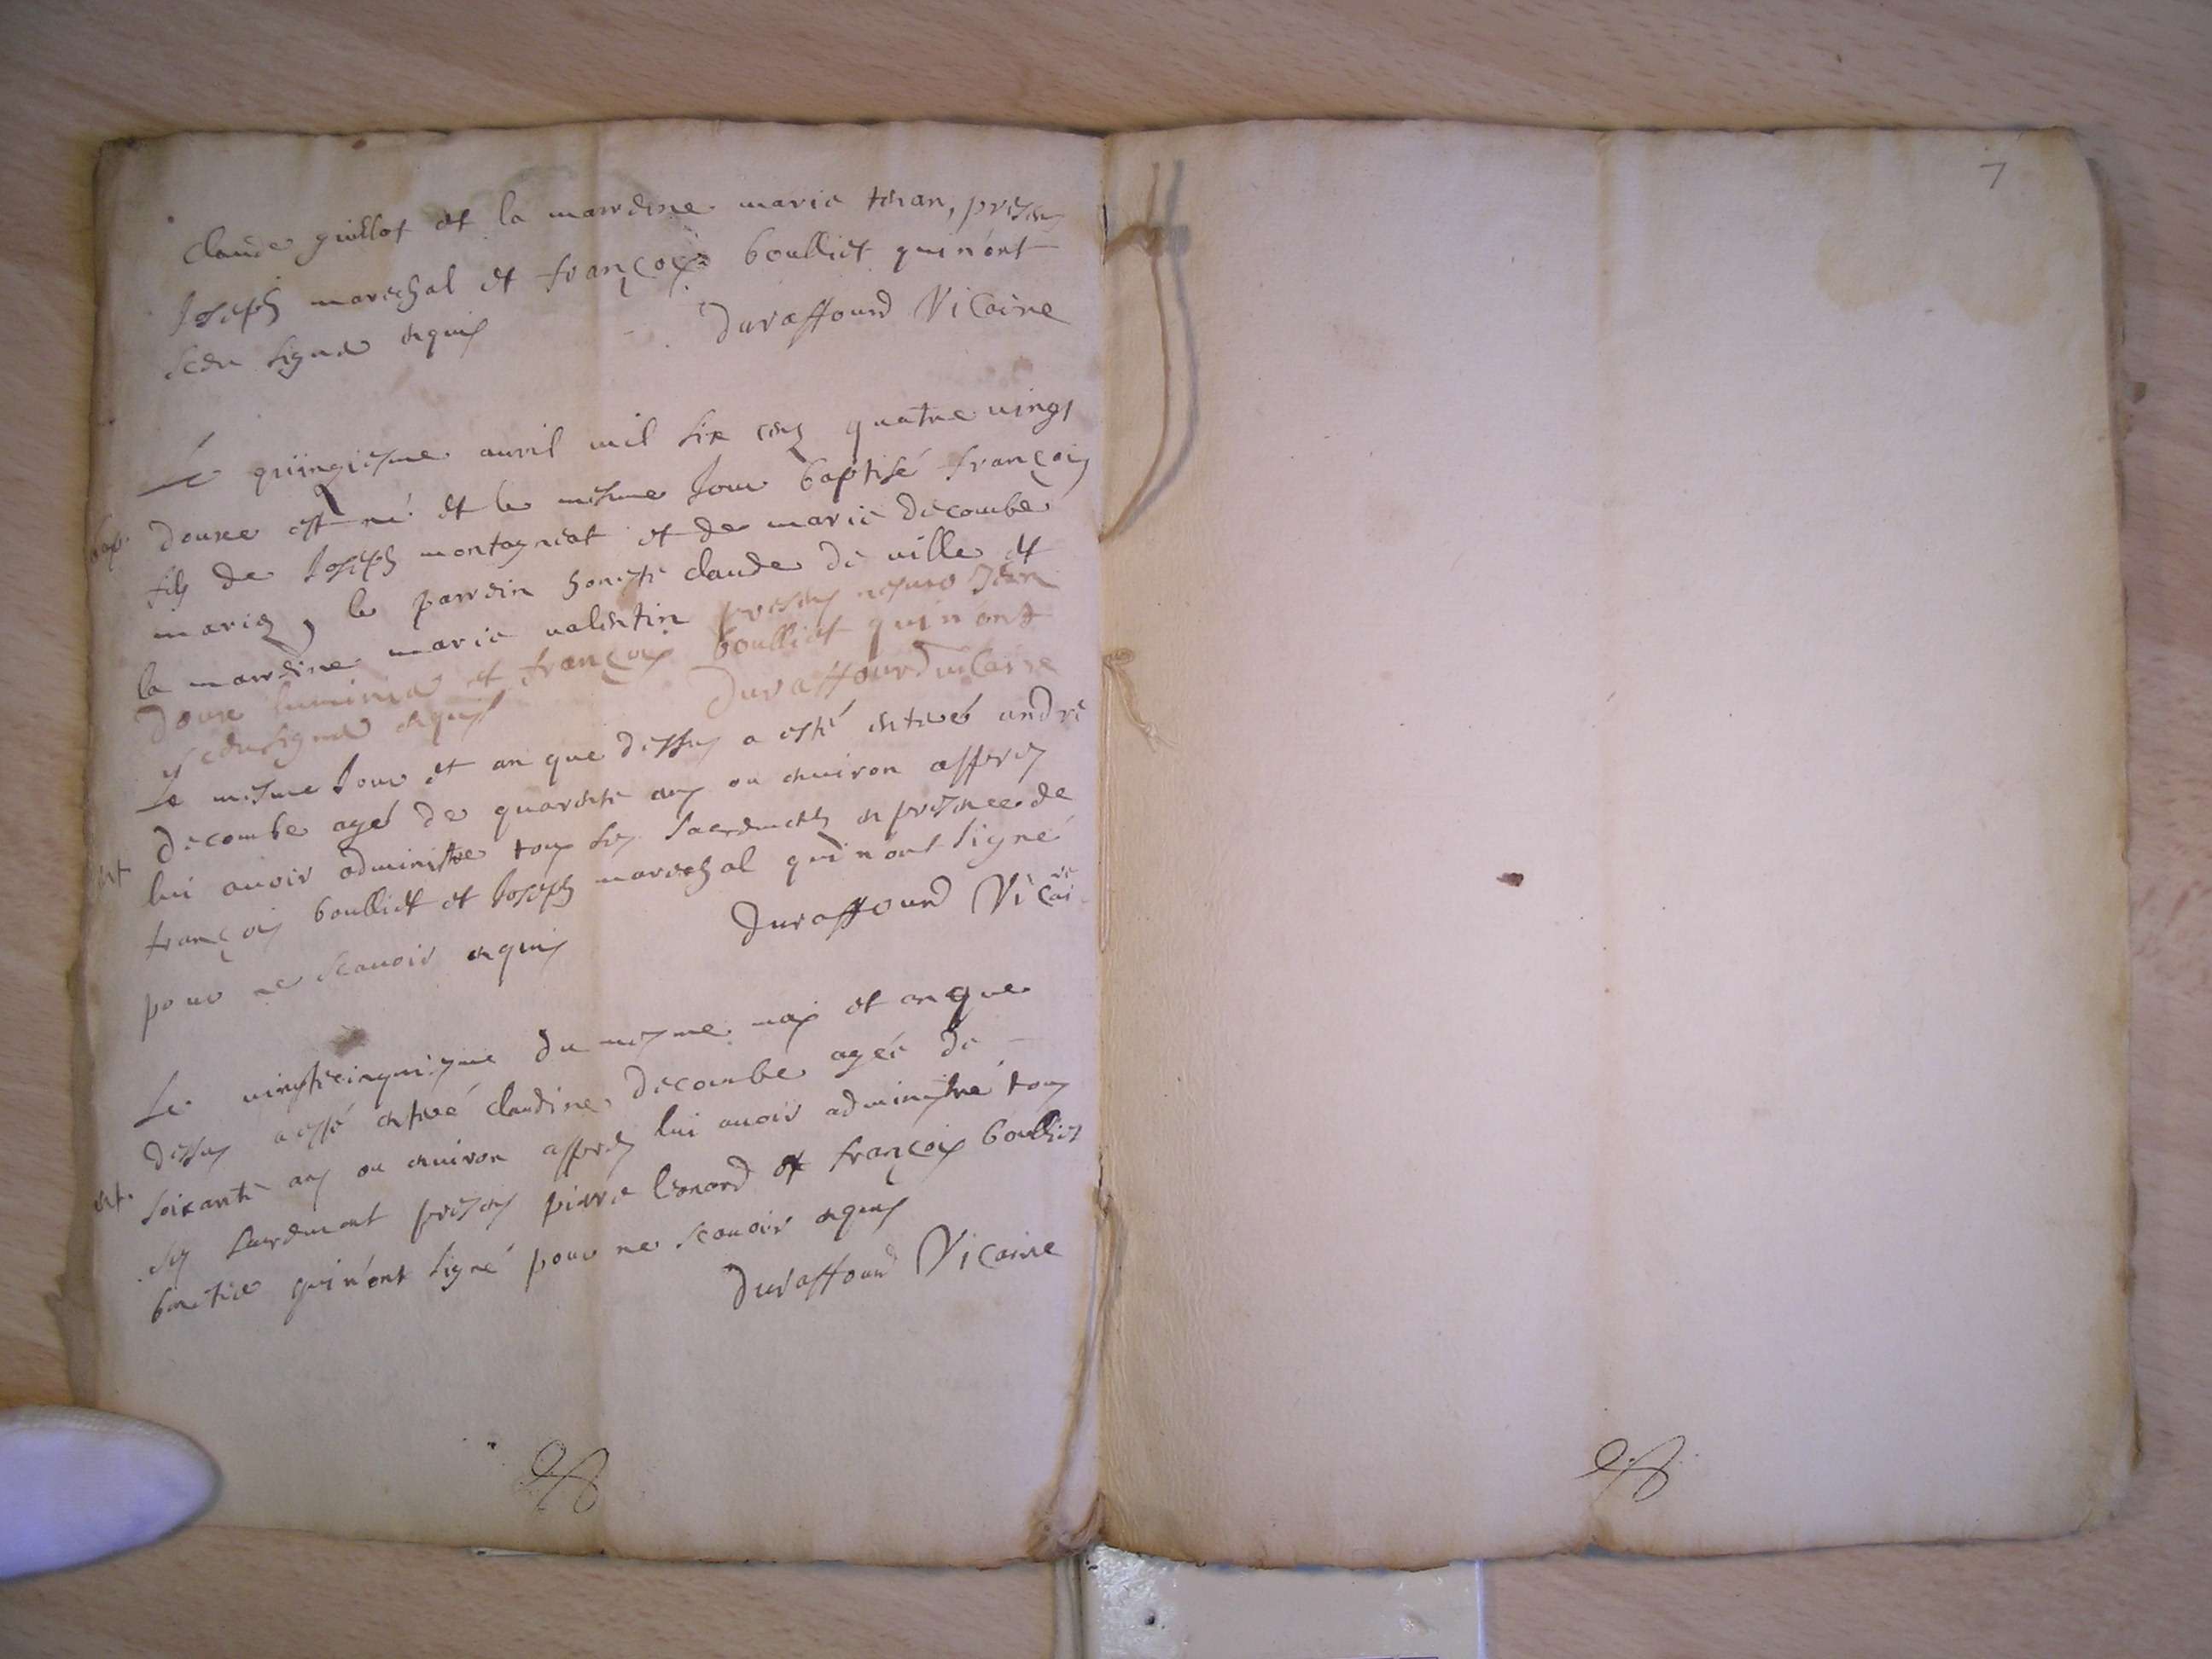 claude guillot et la marreine marie tenan, presens
Joseph mareschal et françois boulliet qui n'ont
sceu signé enquis
duraffourd Vicaire
Le quinziesme auril mil six cens quatre uingt
bap. douze est né et le mesme Jour baptisé françois
fils de Joseph montagneat et de marie decombe
mariez, le parrein honeste claude de uille et
la marreine marie ualentin presens
douze et françois boulliet qui n'ont
sceu signé enquis
duraffourd uicaire
Le mesme Jour et an que dessus a esté enterré andre
decombe agé de quarente ans ou enuiron apprès
ent lui auoir administre tous les sacrements en presence de
françois boulliet et Joseph mareschal qui n'ont signé
pour ne scauoir enquis
duraffourd Vicaire
Le uingtcinquiesme du mesme mois et an que
dessus a esté enterré claudine decombe agée de
soixante ans ou enuiron apprès lui auoir administré tous
ent. les sacrement presens pierre leonard et françois boulliet
qui n'ont signé pour ne scauoir enquis
duraffourd Vicaire
7